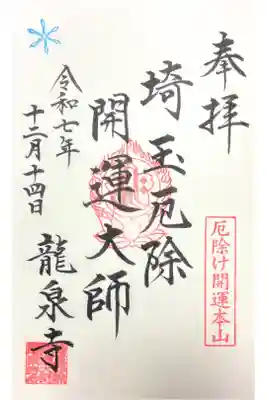 奉拝
埼玉厄除
開運大師
令和七年
十二月十四日
龍泉寺
厄除け開運本山